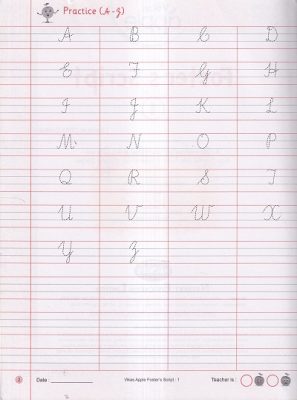 Practice (A-Z)
A B C D
E F G H
I J K L
M N O P
Q R S T
U V W X
Y Z
Date : Vikas Apple Foster's Script - 1 Teacher is :